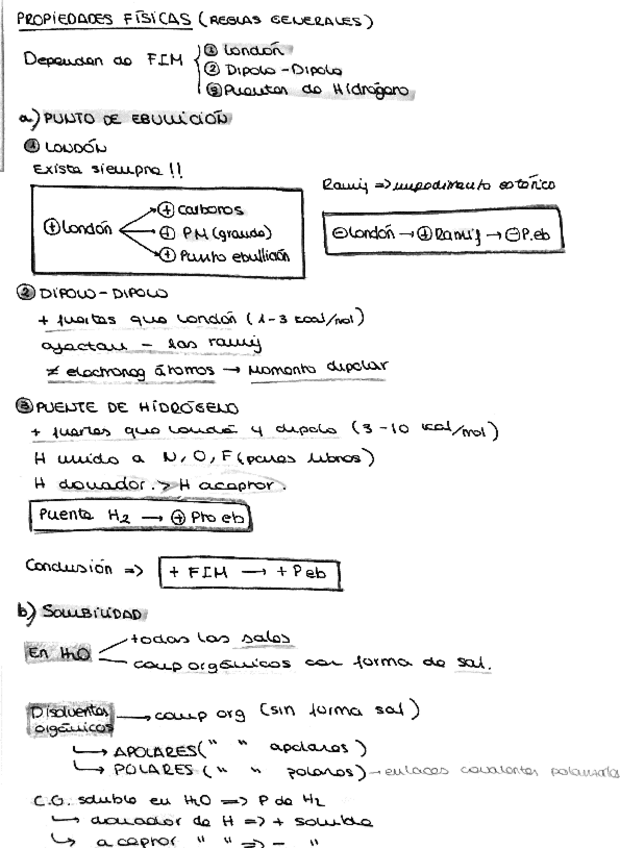 PROPIEDADES FÍSICAS (REGLAS GENERALES)
Dependen de FIM
① London
② Dipolo-Dipolo
③ Puentes de Hidrógeno
a) PUNTO DE EBULLICIÓN
① LONDON
Existe siempre!!
⊕ London
⊕ carbonos
⊕ PM (grande)
⊕ Punto ebullición
Ramif => impedimento estérico
⊖ London → ⊕ Ramif → ⊖ P.eb
② DIPOLO-DIPOLO
+ fuertes que London (1-3 kcal/mol)
afectan - las ramif
≠ electroneg átomos → Momento dipolar
③ PUENTE DE HIDRÓGENO
+ fuertes que London y dipolo (3-10 kcal/mol)
H unido a N, O, F (pares libres)
H donador > H aceptor.
Puente H2 → ⊕ Pto eb
Conclusión => + FIM → + P eb
b) SOLUBILIDAD
En H2O
todas las sales
comp orgánicos con forma de sal.
Disolventes orgánicos → comp org (sin forma sal)
↳ APOLARES (" " apolares)
↳ POLARES (" " polares) → enlaces covalentes
C.G. soluble en H2O => P de H2
↳ donador de H => + soluble
↳ aceptor " " => - "